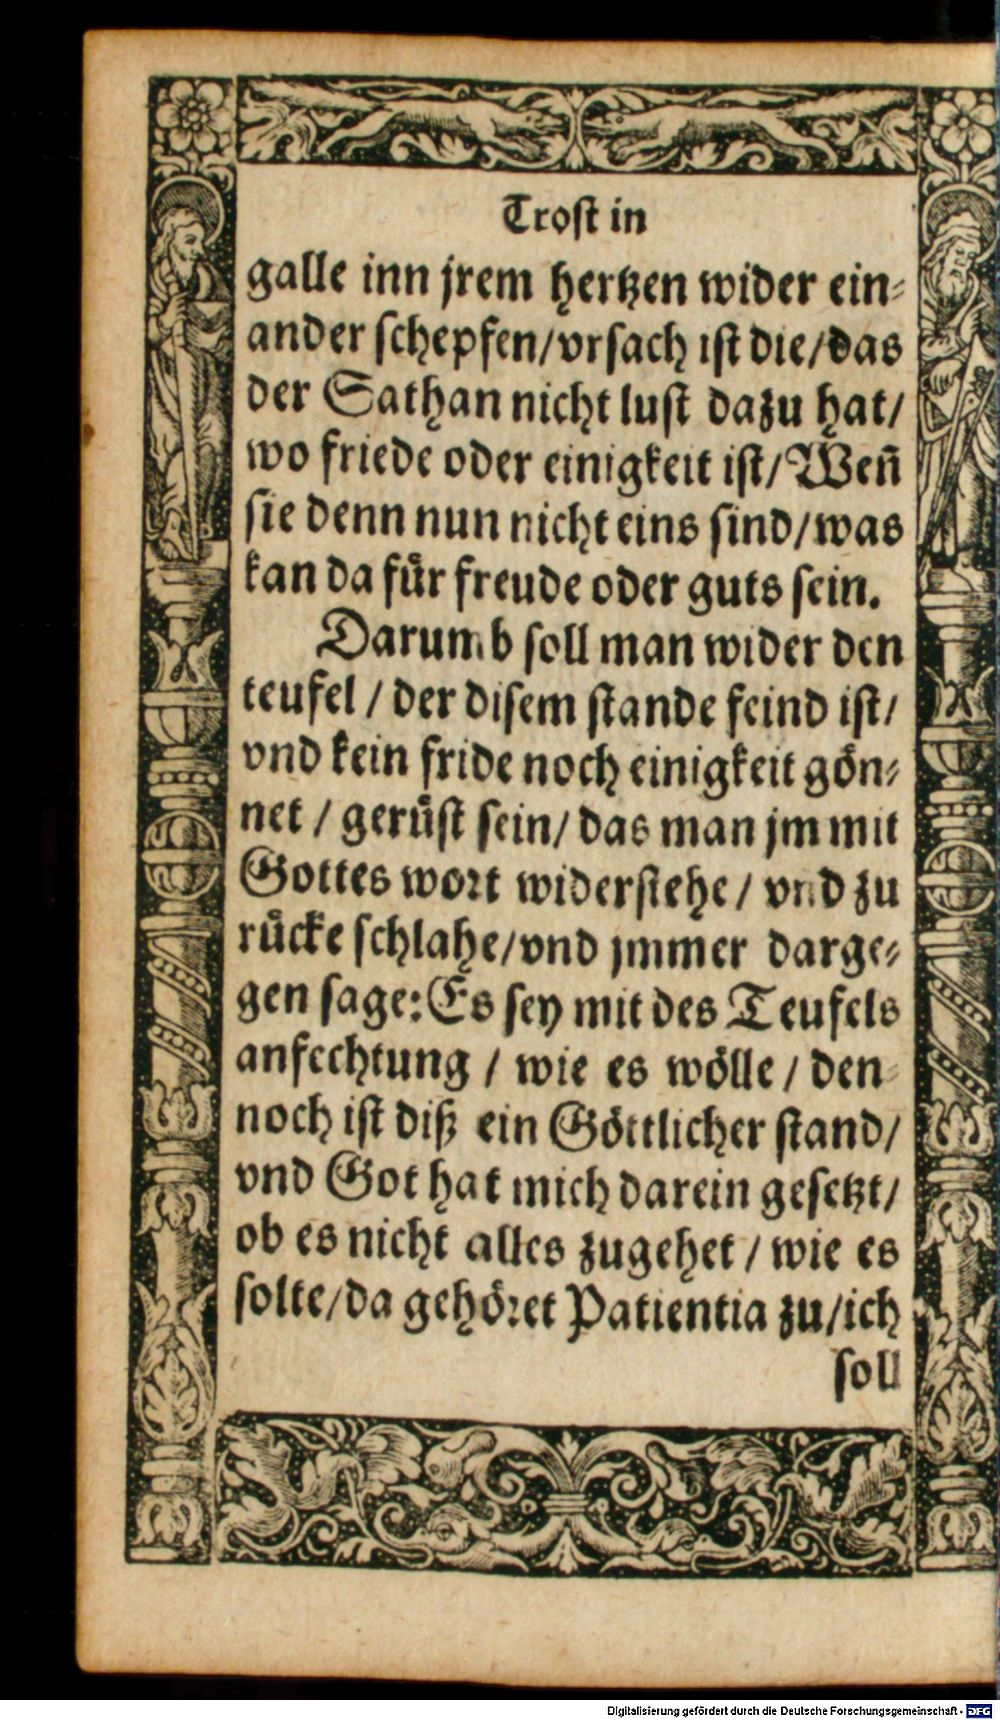 Trost in
galle inn jrem hertzen wider ein⸗
ander schepfen/vrsach ist die/das
der Sathan nicht lust dazu hat/
wo friede oder einigkeit ist/Weñ
sie denn nun nicht eins sind/was
kan da fuͤr freude oder guts sein.
Darumb soll man wider den
teufel / der disem stande feind ist/
vnd kein fride noch einigkeit goͤn⸗
net / geruͤst sein/ das man jm mit
Gottes wort widerstehe / vnd zu
ruͤcke schlahe/vnd jmmer darge⸗
gen sage: Es sey mit des Teufels
anfechtung / wie es woͤlle / den⸗
noch ist diß ein Goͤttlicher stand/
vnd Got hat mich darein gesetzt/
ob es nicht alles zugehet / wie es
solte/da gehoͤret Patientia zu/ich
soll
Digitalisierung gefördert durch die Deutsche Forschungsgemeinschaft - DFG